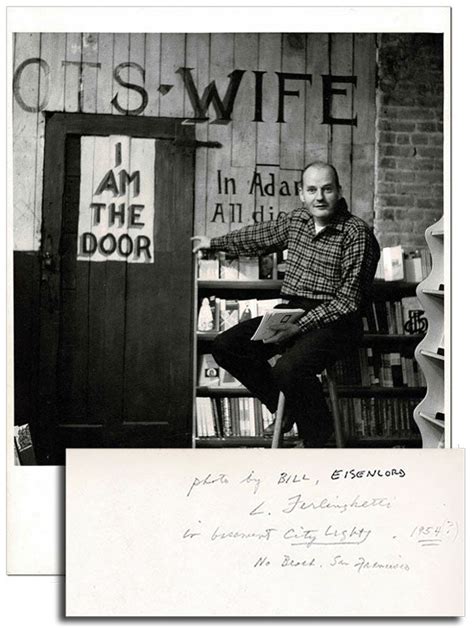 OTS • WIFE
I
AM
THE
DOOR
In Adam
All die
photo by BILL, EISENLORD
L. Ferlinghetti
in basement City Lights. 1954?)
No Beach. San Francisco